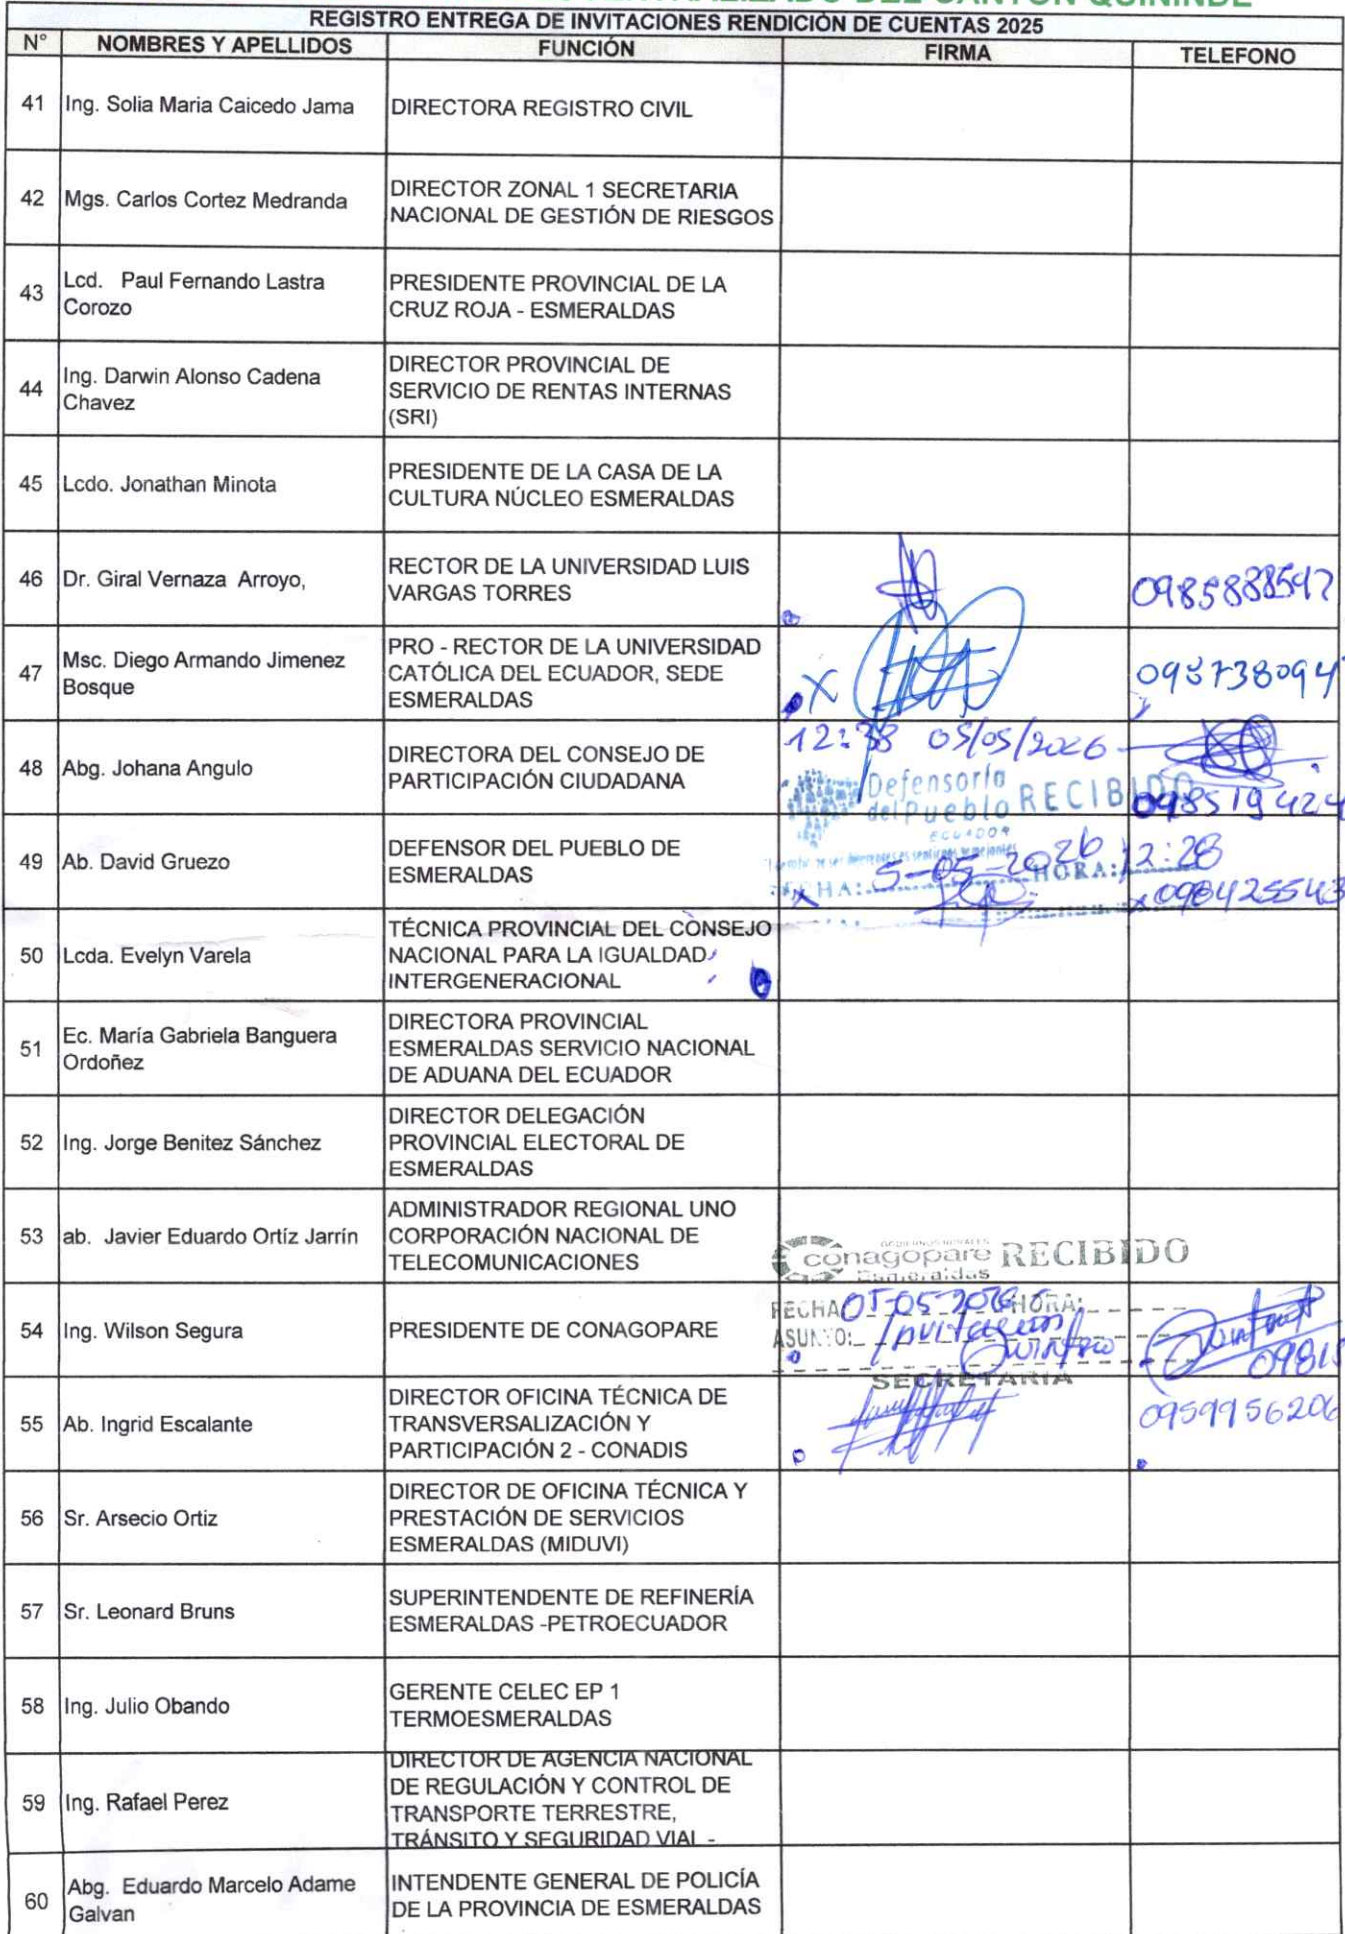 DEL CANTÓN QUININDÉ
REGISTRO ENTREGA DE INVITACIONES RENDICIÓN DE CUENTAS 2025
N° NOMBRES Y APELLIDOS FUNCIÓN FIRMA TELEFONO
41 Ing. Solia Maria Caicedo Jama DIRECTORA REGISTRO CIVIL
42 Mgs. Carlos Cortez Medranda DIRECTOR ZONAL 1 SECRETARIA
NACIONAL DE GESTIÓN DE RIESGOS
43 Lcd. Paul Fernando Lastra
Corozo
PRESIDENTE PROVINCIAL DE LA
CRUZ ROJA - ESMERALDAS
44 Ing. Darwin Alonso Cadena
Chavez
DIRECTOR PROVINCIAL DE
SERVICIO DE RENTAS INTERNAS
(SRI)
45 Lcdo. Jonathan Minota
PRESIDENTE DE LA CASA DE LA
CULTURA NÚCLEO ESMERALDAS
46 Dr. Giral Vernaza Arroyo,
RECTOR DE LA UNIVERSIDAD LUIS
VARGAS TORRES
0985888597
47 Msc. Diego Armando Jimenez
Bosque
PRO - RECTOR DE LA UNIVERSIDAD
CATÓLICA DEL ECUADOR, SEDE
ESMERALDAS
X
48 Abg. Johana Angulo
DIRECTORA DEL CONSEJO DE
PARTICIPACIÓN CIUDADANA
12:38 05/05/2026
Defensoría
del Pueblo RECIBIDO
ECUADOR
098519424
49 Ab. David Gruezo
DEFENSOR DEL PUEBLO DE
ESMERALDAS
FECHA: 5-05-2026 HORA: 12:28
x x 098425543
50 Lcda. Evelyn Varela
TÉCNICA PROVINCIAL DEL CONSEJO
NACIONAL PARA LA IGUALDAD
INTERGENERACIONAL
51 Ec. María Gabriela Banguera
Ordoñez
DIRECTORA PROVINCIAL
ESMERALDAS SERVICIO NACIONAL
DE ADUANA DEL ECUADOR
52 Ing. Jorge Benitez Sánchez
DIRECTOR DELEGACIÓN
PROVINCIAL ELECTORAL DE
ESMERALDAS
53 ab. Javier Eduardo Ortíz Jarrín
ADMINISTRADOR REGIONAL UNO
CORPORACIÓN NACIONAL DE
TELECOMUNICACIONES
conagopare RECIBIDO
Esmeraldas
54 Ing. Wilson Segura
PRESIDENTE DE CONAGOPARE
FECHA 05-05-2026 HORA:
ASUNTO: Invitación
0981
SECRETARIA
55 Ab. Ingrid Escalante
DIRECTOR OFICINA TÉCNICA DE
TRANSVERSALIZACIÓN Y
PARTICIPACIÓN 2 - CONADIS
0959956206
56 Sr. Arsecio Ortiz
DIRECTOR DE OFICINA TÉCNICA Y
PRESTACIÓN DE SERVICIOS
ESMERALDAS (MIDUVI)
57 Sr. Leonard Bruns
SUPERINTENDENTE DE REFINERÍA
ESMERALDAS -PETROECUADOR
58 Ing. Julio Obando
GERENTE CELEC EP 1
TERMOESMERALDAS
59 Ing. Rafael Perez
DIRECTOR DE AGENCIA NACIONAL
DE REGULACIÓN Y CONTROL DE
TRANSPORTE TERRESTRE,
TRÁNSITO Y SEGURIDAD VIAL -
60 Abg. Eduardo Marcelo Adame
Galvan
INTENDENTE GENERAL DE POLICÍA
DE LA PROVINCIA DE ESMERALDAS